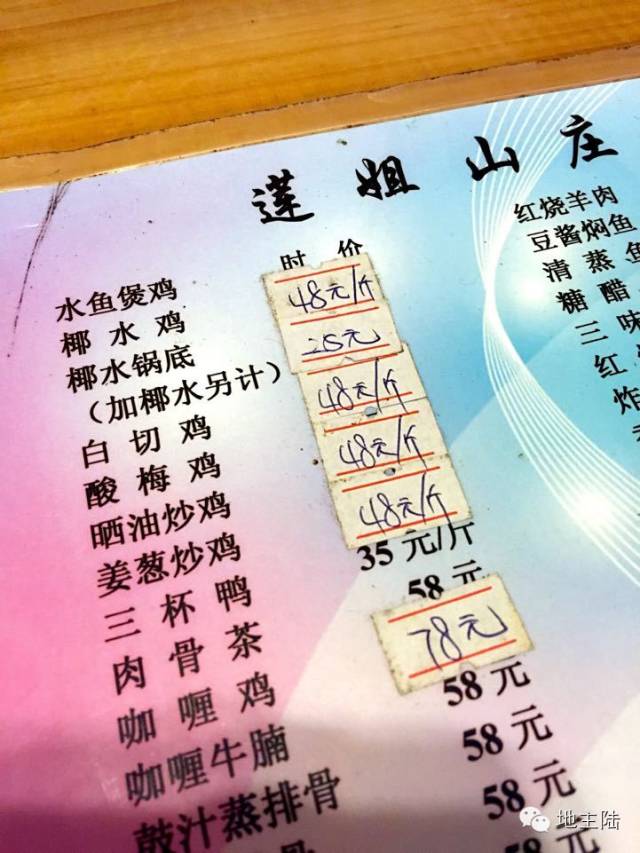 莲姐山庄
水鱼煲鸡 时价
椰水鸡 48元/斤
椰水锅底 28元
（加椰水另计）
白切鸡 48元/斤
酸梅鸡 48元/斤
晒油炒鸡 48元/斤
姜葱炒鸡 35元/斤
三杯鸭 58元
肉骨茶 78元
咖喱鸡 58元
咖喱牛腩 58元
鼓汁蒸排骨 58元
骨
红烧羊肉
豆酱焖鱼
清蒸鱼
糖醋
三味
红
炸
地主陆